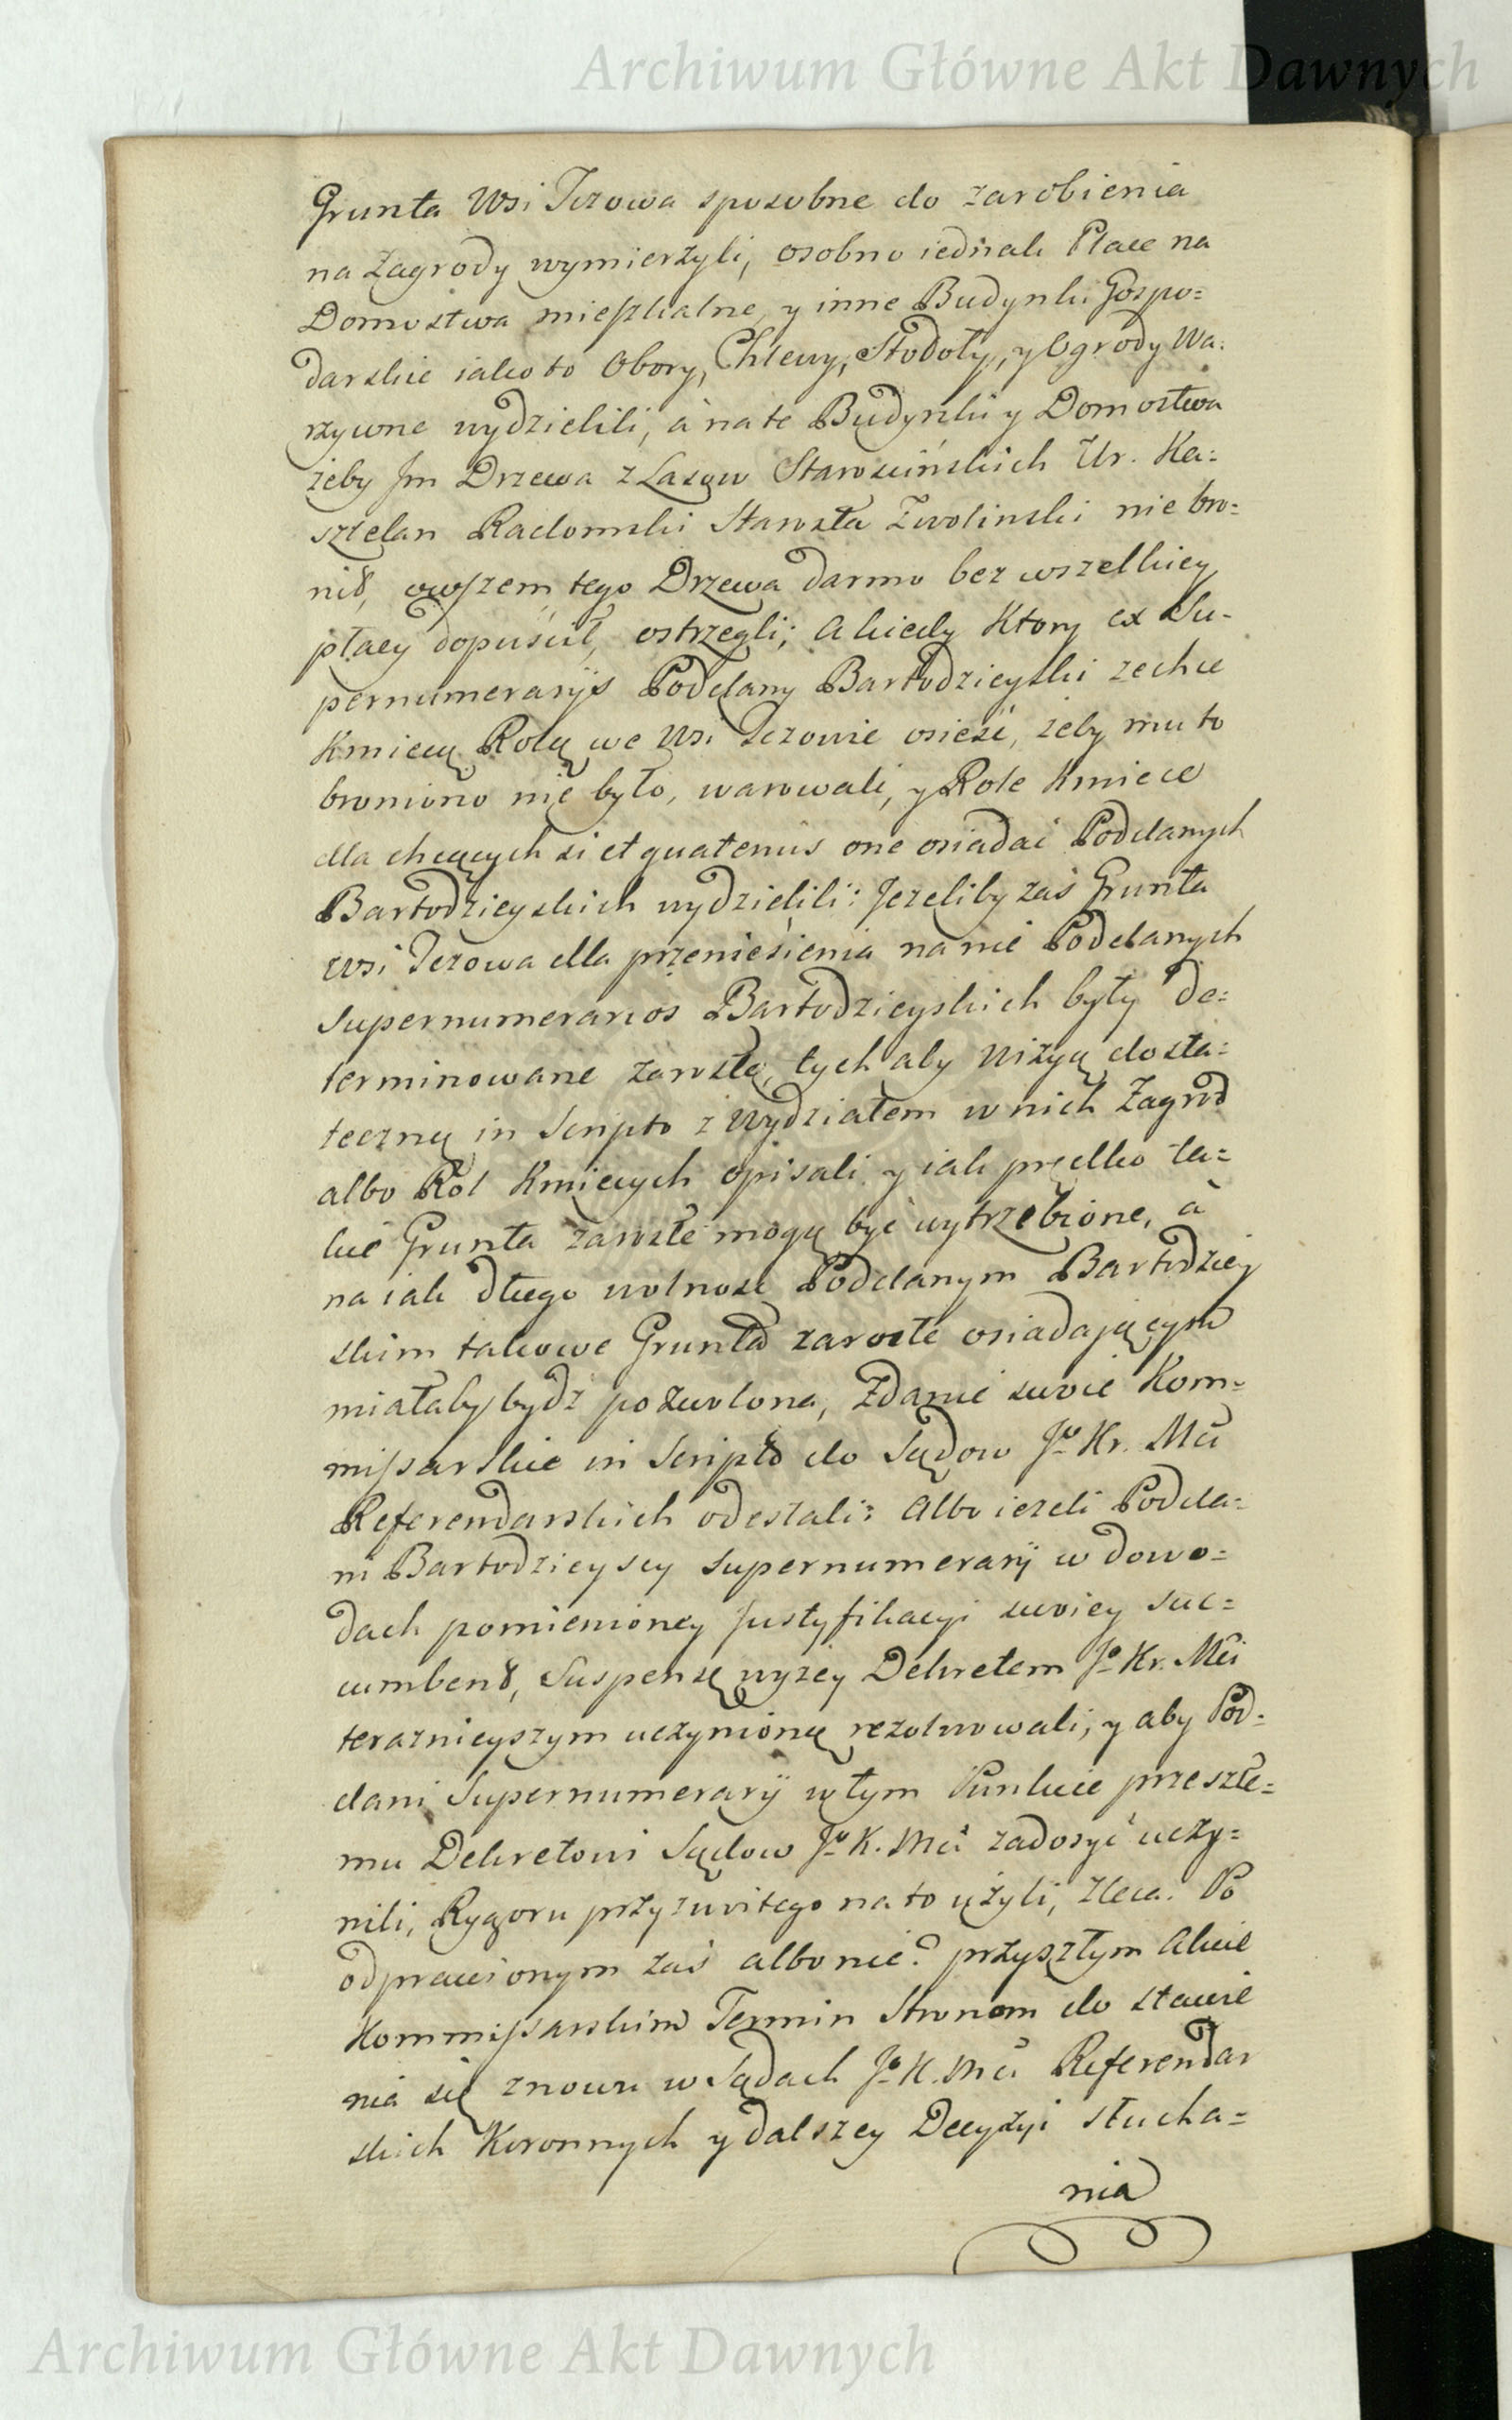 Archiwum Główne Akt Dawnych
Grunta Wsi Jezowa sposobne do zarobienia
na Zagrody wymierzyli, osobno iednak Place na
Domostwa mieszkalne, y inne Budynki Gospo=
darskie iako to Obory, Chlewy, Stodoły, y Ogrody Wa=
rzywne wydzielili, à na te Budynki y Domostwa
żeby Jm Drzewa z Lasow Starościńskich Ur. Ka=
sztelan Radomski Starosta Zwolinski nie bro=
nił, owszem tego Drzewa darmo bez wszelkiey
płacy dopuścił, ostrzegli; A kiedy Ktory ex Su=
pernumerarijs Poddany Bartodzieyski zechce
Kmiecą Rolą we Wsi Jezowie osieść, żeby mu to
broniono nie było, warowali, y Role Kmiece
dla chcących si et quatenus one osiadać Poddanych
Bartodzieyskich wydzielili: Jezeliby zaś Grunta
Wsi Jezowa dla przeniesienia na nie Poddanych
Supernumerarios Bartodzieyskich były de=
terminowane zarosłe, tych aby Wizyą dosta=
teczną in Scripto z Wydziałem w nich Zagrod
albo Rol Kmiecych opisali y iak prędko ta=
kie Grunta zarosłe mogą być wytrzebione, à
na iak długo wolność Poddanym Bartodziey
skim takowe Grunta zarosłe osiadającym
miałaby bydź pozwolona, Zdanie swoie Kom=
missarskie in Scripto do Sądow Jo Kr. Mci
Referendarskich odesłali: Albo iezeli Podda=
ni Bartodzieyscy Supernumerarij w dowo=
dach pomienioney Justyfikacyi swoiey suc=
cumbent, Suspensę wyżey Dekretem Jo Kr. Mci
teraznieyszym uczynioną rezolwowali, y aby Pod=
dani Supernumerarij w tym Punkcie przeszłe=
mu Dekretowi Sądow Jo K. Mci zadosyć uczy=
nili, Rygoru przyzwitego na to użyli, zleca. Po
odprawionym zaś albo nie? przyszłym Akcie
Kommissarskim Termin Stronom do stawie
nia się znowu w Sądach Jo K. Mci Referendar
skich Koronnych y dalszey Decyzyi słucha=
nia
Archiwum Główne Akt Dawnych